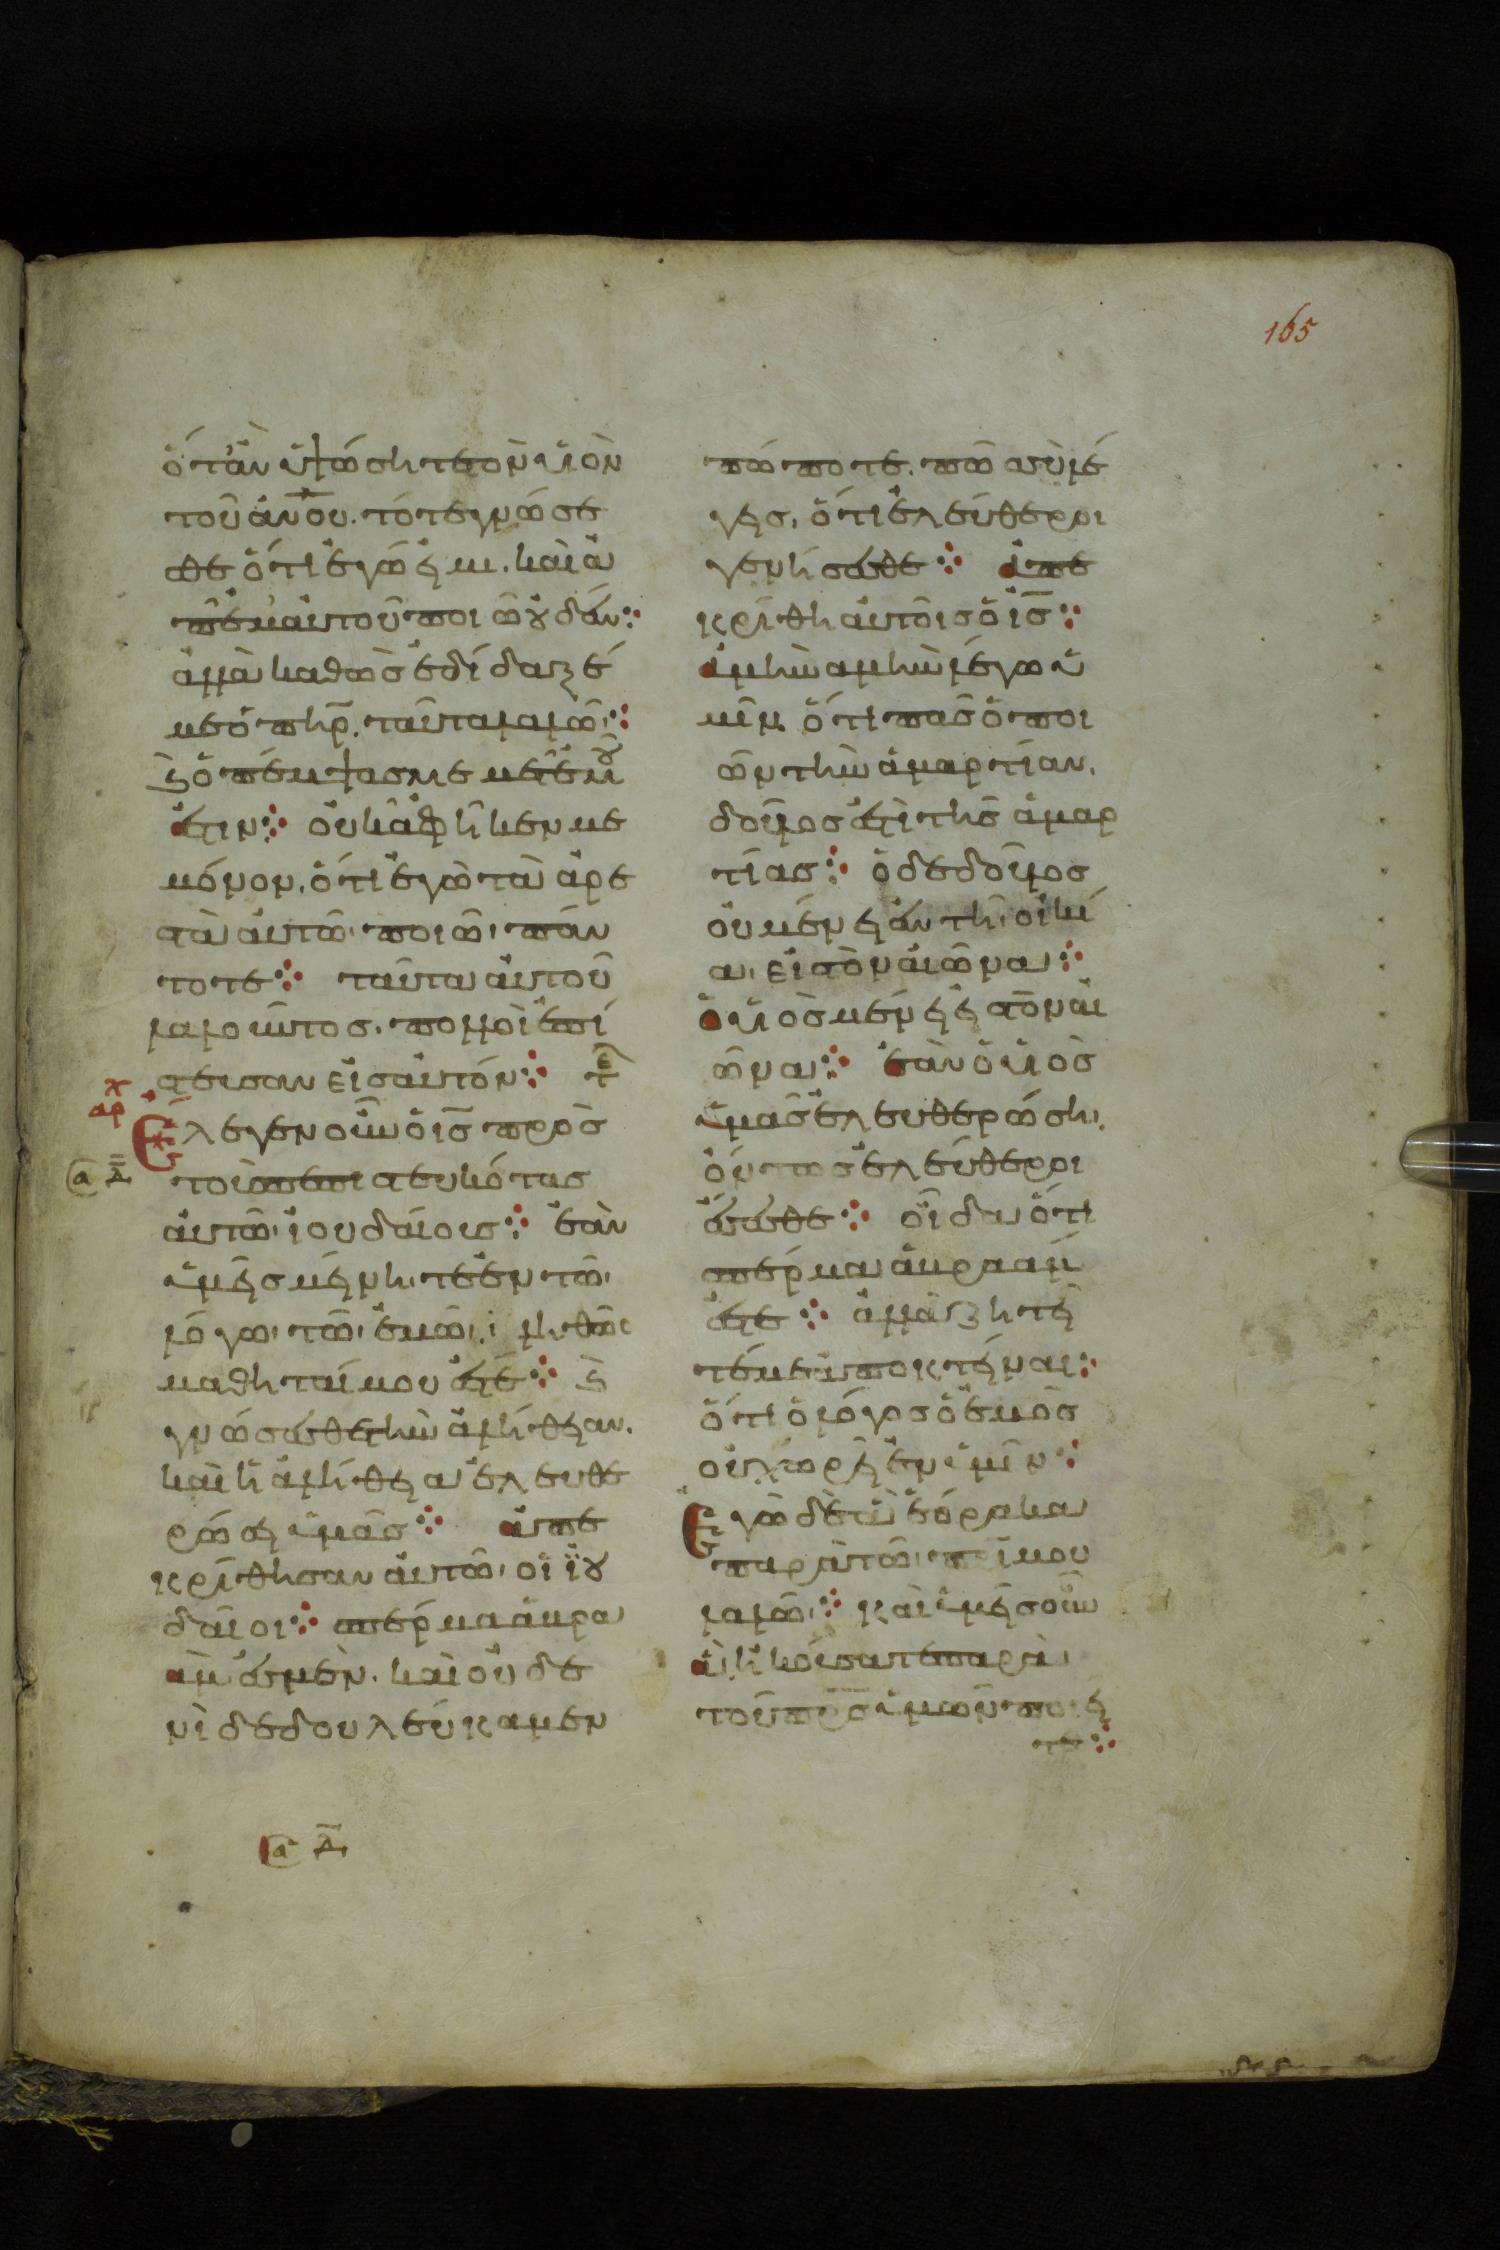 165
ὅτἂν ὑψώσητε τὸν υἱὸν
τοῦ ἀν̅ου. τότε γνώσε
σθε ὅτι ἐγώ εἰμι. καὶ ἀ
π' ἐμαυτοῦ ποιῶ οὐδέν:
ἀλλὰ καθὼς ἐδίδαξέ
με ὁ πηρ̅. ταῦτα λαλῶ:
καὶ ὁ πέμψας με μετ' ἐμοῦ
ἐστιν: οὐκ ἀφῆκεν με
μόνον, ὅτι ἐγὼ τὰ ἀρε
στὰ αὐτῶ ποιῶ πάν
τοτε: ταῦτα αὐτοῦ
λαλοῦντος. πολλοὶ ἐπί
στευσαν εἰς αὐτόν: τε
αρχ
Ἔλεγεν οὖν ὁ ις̅ πρὸς
τοὺς πεπιστευκότας
αὐτῶ ἰουδαίους: ἐὰν
ὑμεῖς μείνητε ἐν τῶ
λόγω τῶ ἐμῶ, ἀληθῶς
μαθηταί μου ἐστέ: καὶ
γνώσεσθε τὴν ἀλήθειαν.
καὶ ἡ ἀλήθεια ἐλευθε
ρώσει ὑμᾶς: ἀπε
κρίθησαν αὐτῶ οἱ ἰου
δαῖοι: σπέρμα ἀβρα
ὰμ ἐσμὲν. καὶ οὐδε
νὶ δεδουλεύκαμεν
πώποτε. πῶς σὺ λέ
γεις, ὅτι ἐλεύθεροι
γενήσεσθε: ἀπε
κρίθη αὐτοῖς ὁ ις̅:
ἀμὴν ἀμὴν λέγω ὑ
μῖν ὅτι πᾶς ὁ ποι
ῶν τὴν ἁμαρτίαν.
δοῦλος ἐστὶ τῆς ἁμαρ
τίας: ὁ δὲ δοῦλος
οὐ μένει ἐν τῆ οἰκί
α εἰς τὸν αἰῶνα:
ὁ υἱὸς μένει εἰς τὸν αἰ
ῶνα: ἐὰν ὁ υἱὸς
ὑμᾶς ἐλευθερώση.
ὄντως ἐλεύθεροι
ἔσεσθε: οἶδα ὅτι
σπέρμα ἀβραάμ
ἐστε: ἀλλὰ ζητεῖ
τέ με ἀποκτεῖναι:
ὅτι ὁ λόγος ὁ ἐμὸς
οὐ χωρεῖ ἐν ὑμῖν:
Ἐγὼ δὲ ὃ ἑόρακα
παρὰ τῶ πρι̅ μου
λαλῶ: καὶ ὑμεῖς οὖν
ἃ ἠκούσατε παρὰ
τοῦ πρς̅ ὑμῶν ποιεῖ
τε: